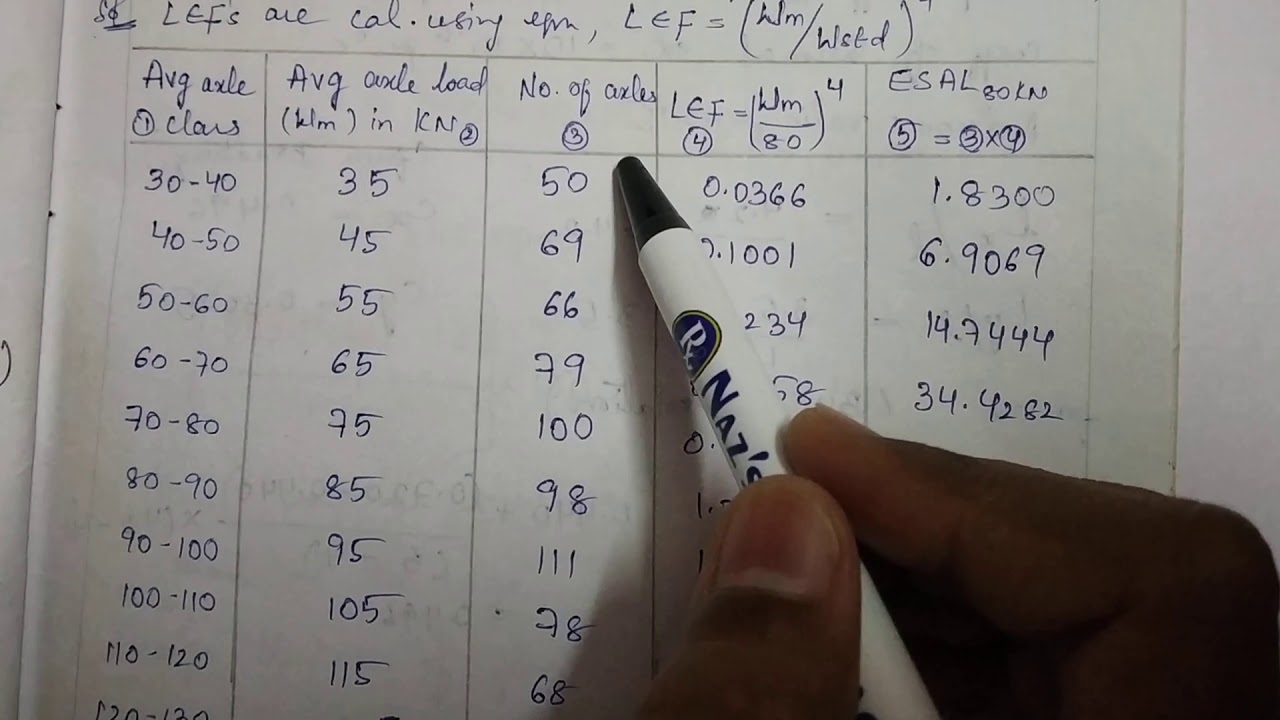 LEF's are cal. using eqn, LEF = (Wm/Wstd)^4
Avg axle ① class | Avg axle load (Wm) in KN ② | No. of axles ③ | LEF = (Wm/80)^4 ④ | ESAL80KN ⑤ = ③×④
30-40 35 50 0.0366 1.8300
40-50 45 69 .1001 6.9069
50-60 55 66 234 14.7444
60-70 65 79 58 34.4282
70-80 75 100 0.
80-90 85 98 1.
90-100 95 111 1
100-110 105 78
110-120 115 68
120-130
NAZ's